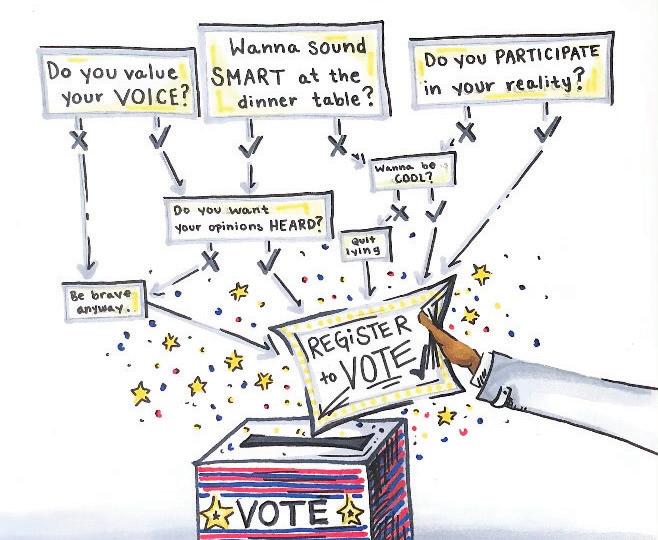 Do you value
your VOICE?
Wanna sound
SMART at the
dinner table?
Do you PARTICIPATE
in your reality?
Wanna be
COOL?
Do you want
your opinions HEARD?
Quit
lying
Be brave
anyway.
REGiSTER
to VOTE
VOTE